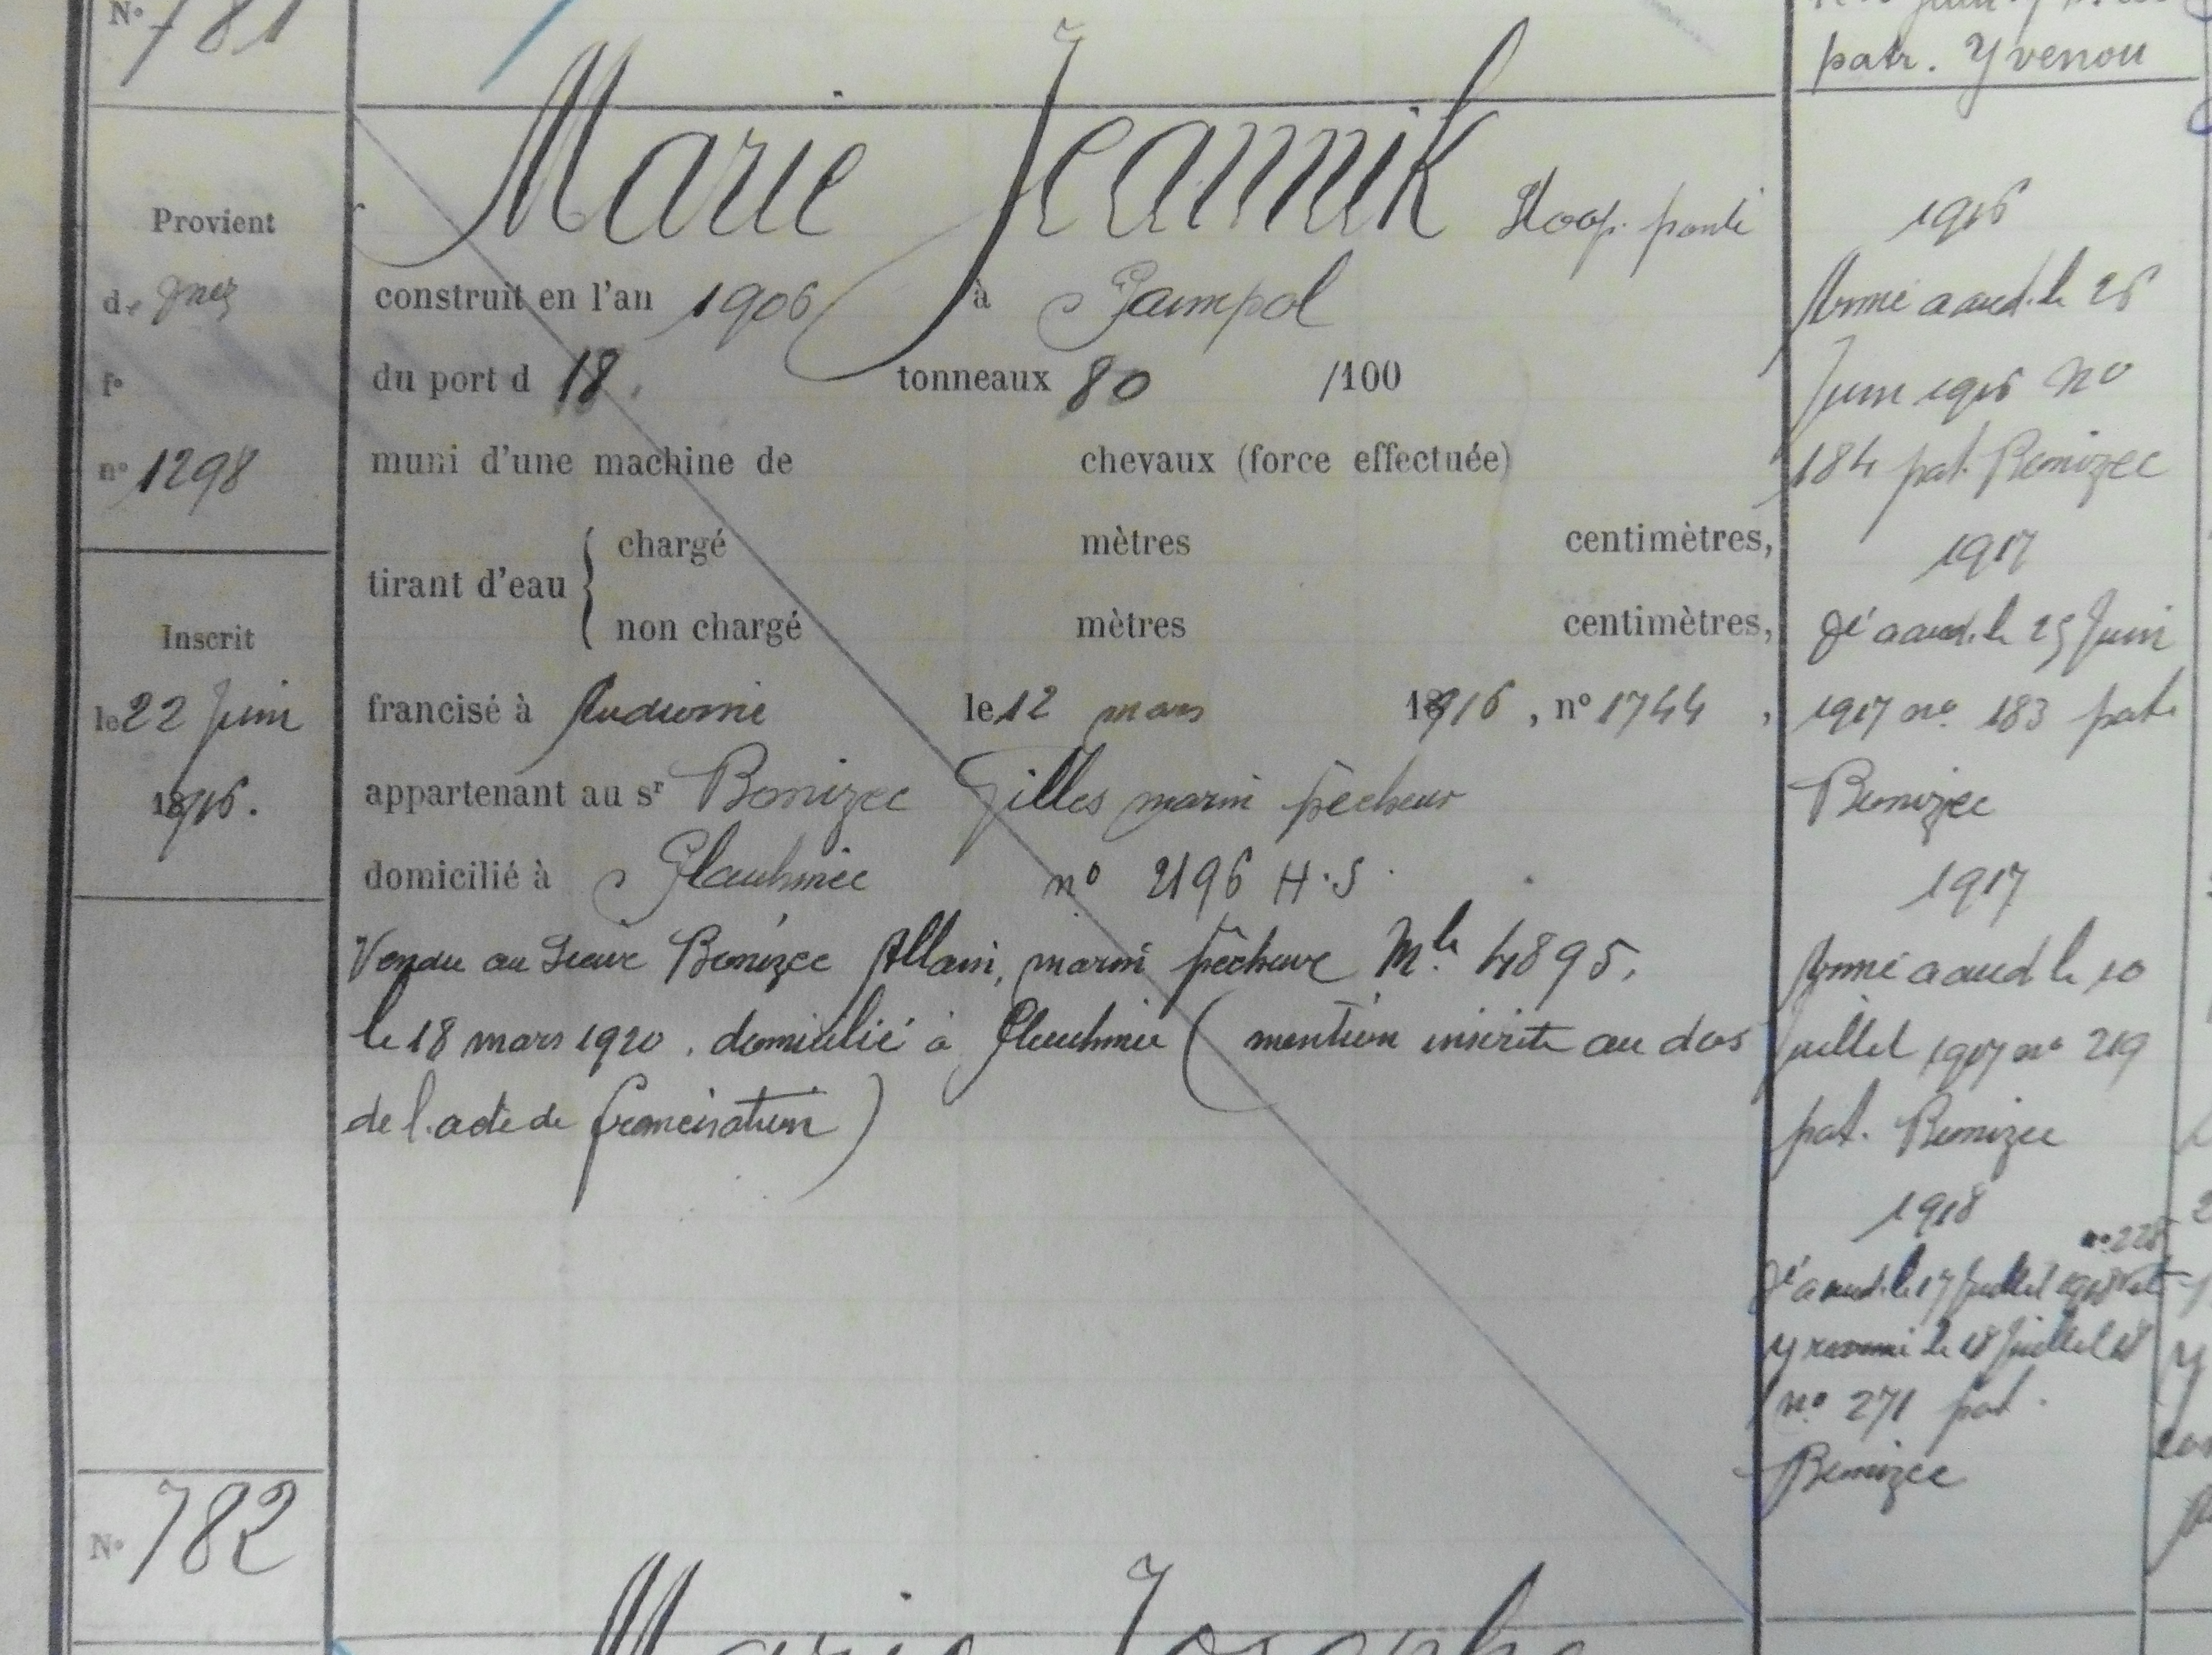 N° 781
patr. Yvenou
Marie Jeannik Sloop ponté
Provient
de
f°
n° 1298
construit en l'an 1906 à Paimpol
du port d 18. tonneaux 80 /100
muni d'une machine de chevaux (force effectuée)
tirant d'eau { chargé mètres centimètres,
non chargé mètres centimètres,
Inscrit
le 22 Juin
1916.
francisé à Audierne le 12 mars 1916, n° 1744,
appartenant au sr Bonizec Gilles marin pêcheur
domicilié à Plouhinec n° 2196 H.S.
Vendu au sieur Bonizec Allain, marin pêcheur Mle 4895.
le 18 mars 1920. domicilié à Plouhinec (mention inscrite au dos
de l'acte de francisation)
1916
Armé à aud. le 26
Juin 1916 n°
184 pat. Bonizec
1917
Dé à aud. le 25 Juin
1917 n° 183 pat.
Bonizec
1917
Armé à aud le 10
Juillet 1917 n° 219
pat. Bonizec
1918
n° 228
Dé à aud. le 17 Juillet 1918
y réarmé le 18 Juillet 18
n° 271 pat.
Bonizec
N° 782
Marie Josephe